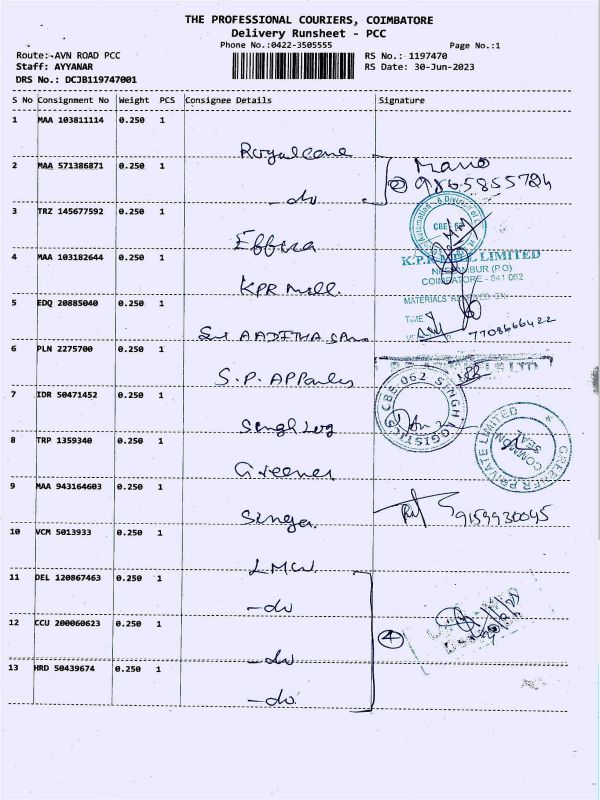 THE PROFESSIONAL COURIERS, COIMBATORE
Delivery Runsheet - PCC
Phone No.:0422-3505555
Page No.:1
Route:-AVN ROAD PCC
RS No.: 1197470
Staff: AYYANAR
RS Date: 30-Jun-2023
DRS No.: DCJB119747001
S No Consignment No Weight PCS Consignee Details Signature
1 MAA 103811114 0.250 1
Royalcane
Mano
2 MAA 571386871 0.250 1
2 9865855724
-do
3 TRZ 145677592 0.250 1
Effica
4 MAA 103182644 0.250 1
K.P.R MILL LIMITED
COIMBATORE - 641 062
KPR Mill.
5 EDQ 20885040 0.250 1
MATERIALS RECEIVED ON
TIME
7708666422
Sri AADITHA
6 PLN 2275700 0.250 1
S.P. APParles
7 IDR 50471452 0.250 1
CBE-062 SINGH LOGISTICS
Singh Log
GREENER PRIVATE LIMITED
COMMON SEAL
8 TRP 1359340 0.250 1
Greener
9 MAA 943164603 0.250 1
9159930045
Singer.
10 VCM 5013933 0.250 1
LMW.
11 DEL 120867463 0.250 1
-do
12 CCU 200060623 0.250 1
4
-do
13 HRD 50439674 0.250 1
-do